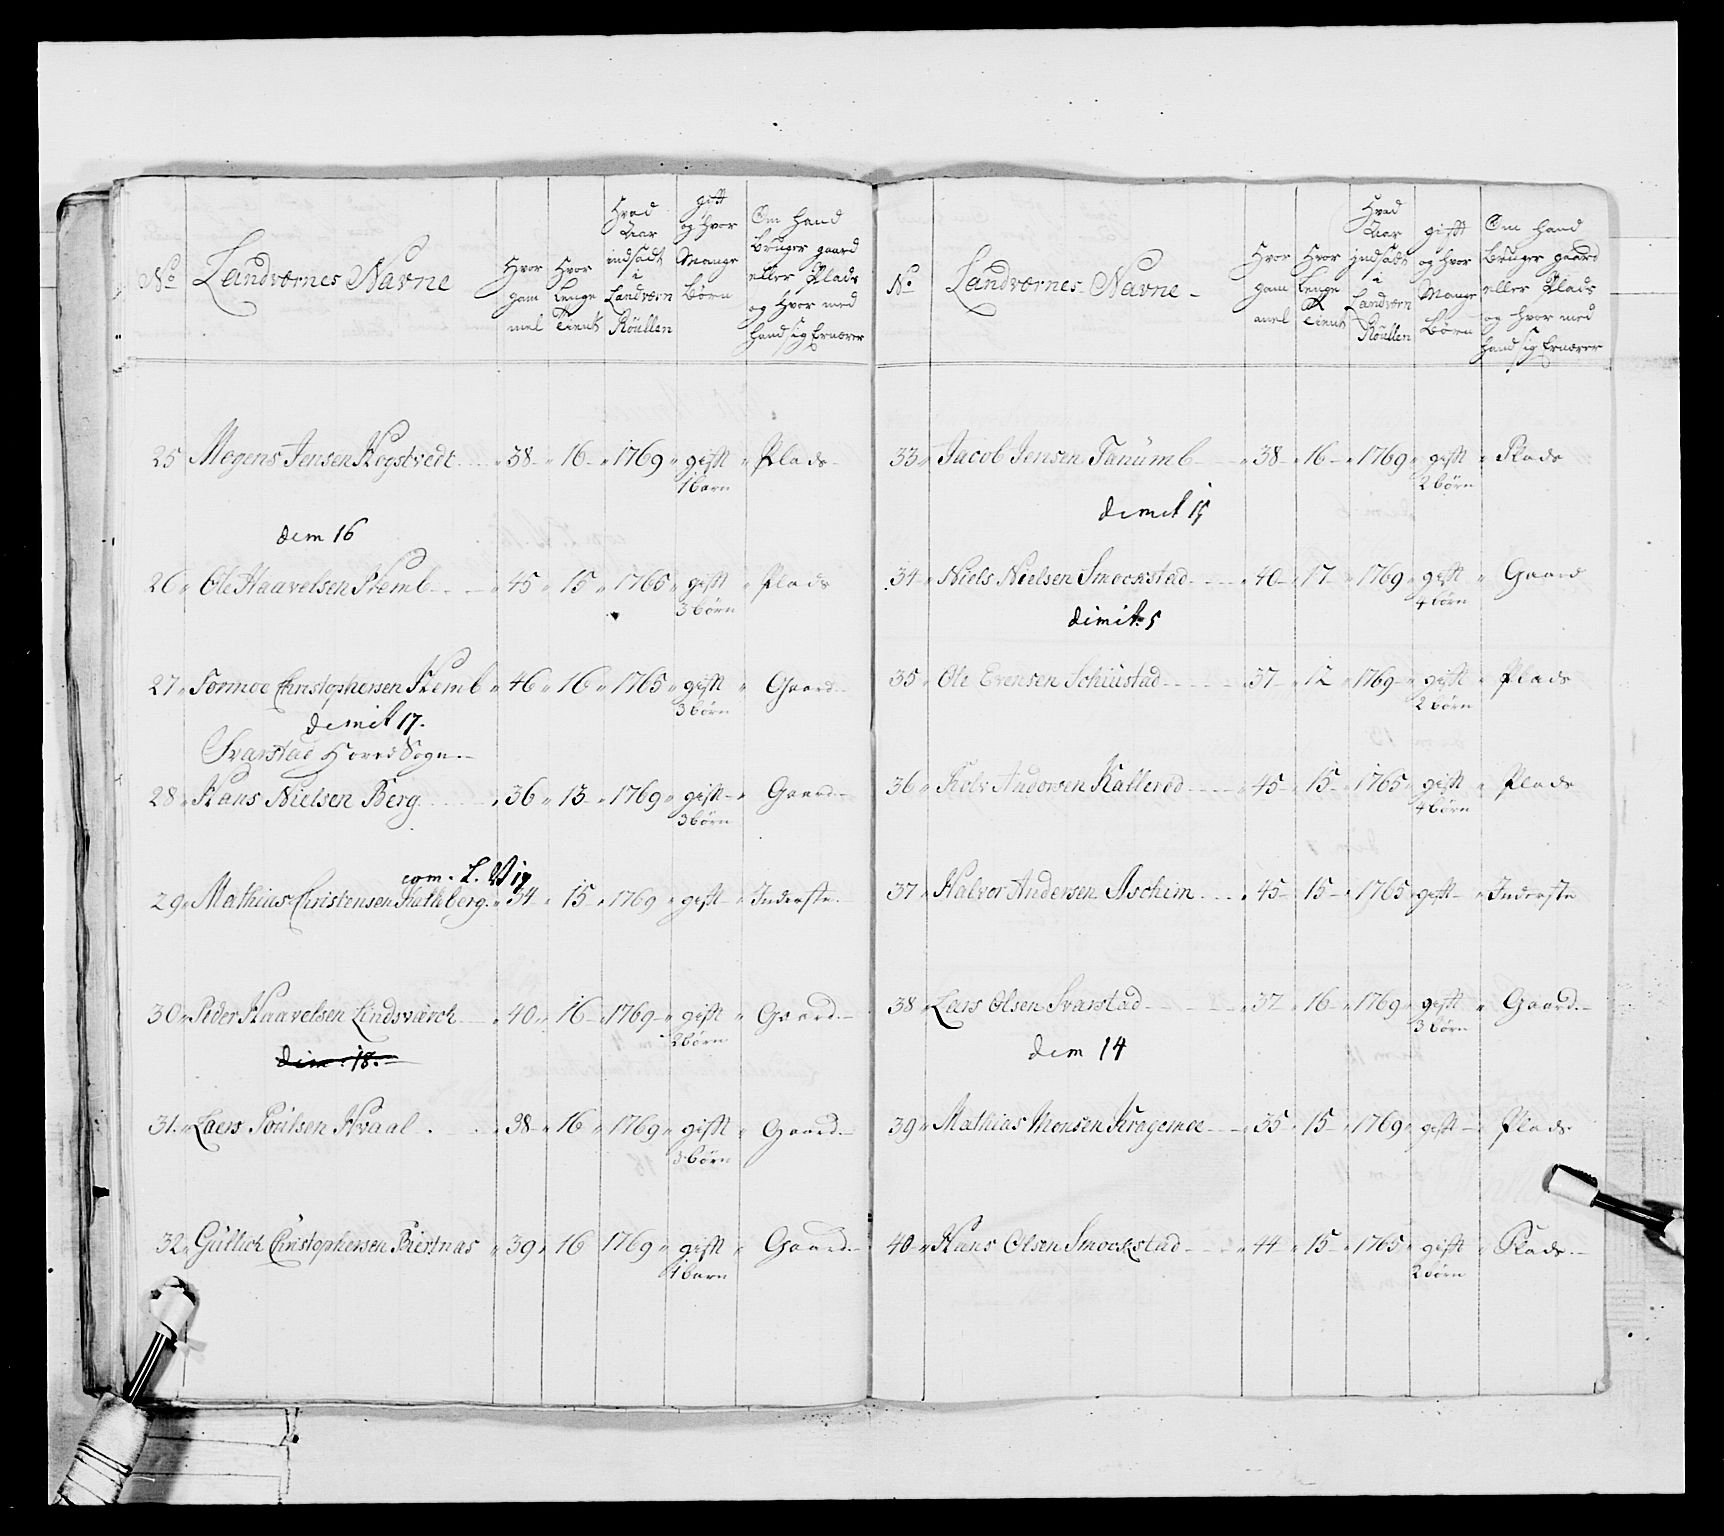 No
Landværnes Navne
Hvor gam mel
Hvor Lenge Tient
Hvad Aar indsadt i Landværn Roullen
gift og hvor Mange Börn
Om hand Bruger gaard eller Plads og hvor med hand sig Ernærer
25 Mogens Jensen Kogstvedt 38 16 1769 gift Plads
1 barn
dem 16
26 Ole Haavelsen Kemb 45 15 1765 gift Plads
3 börn
27 Tormoe Christophersen Kemb 46 16 1765 gift Gaard
3 börn
dimit 17.
Svarstad Hoved Sogn
28 Hans Nielsen Berg 36 13 1769 gift Gaard
3 börn
com. L. V 17
29 Mathias Christensen Kathberg 34 15 1769 gift Inderste
30 Peder Haavelsen Lindsværck 40 16 1769 gift Gaard
2 börn
dim. 18.
31 Laers Poulsen Hvaal 38 16 1769 gift Gaard
3 börn
32 Gullich Christophersen Biertnas 39 16 1769 gift Gaard
1 barn
No
Landværnes Navne
Hvor gam mel
Hvor Lenge Tient
Hvad Aar indsadt i Landværn Roullen
gift og hvor Mange Börn
Om hand Bruger gaard eller Plads og hvor med hand sig Ernærer
33 Jacob Jensen Tanumb 38 16 1769 gift Plads
2 börn
dimit 15
34 Niels Nielsen Smockstad 40 17 1769 gift Gaard
4 börn
dimit 5
35 Ole Evensen Schiustad 37 12 1769 gift Plads
2 börn
36 Andersen Kallerød 45 15 1765 gift Plads
4 börn
37 Halvor Andersen Aschim 45 15 1765 gift Inderste
38 Lars Olsen Svarstad 37 16 1769 gift Gaard
3 börn
dem 14
39 Mathias Monsen Kragemoe 35 15 1769 gift Plads
40 Hans Olsen Smockstad 44 15 1765 gift Plads
2 börn